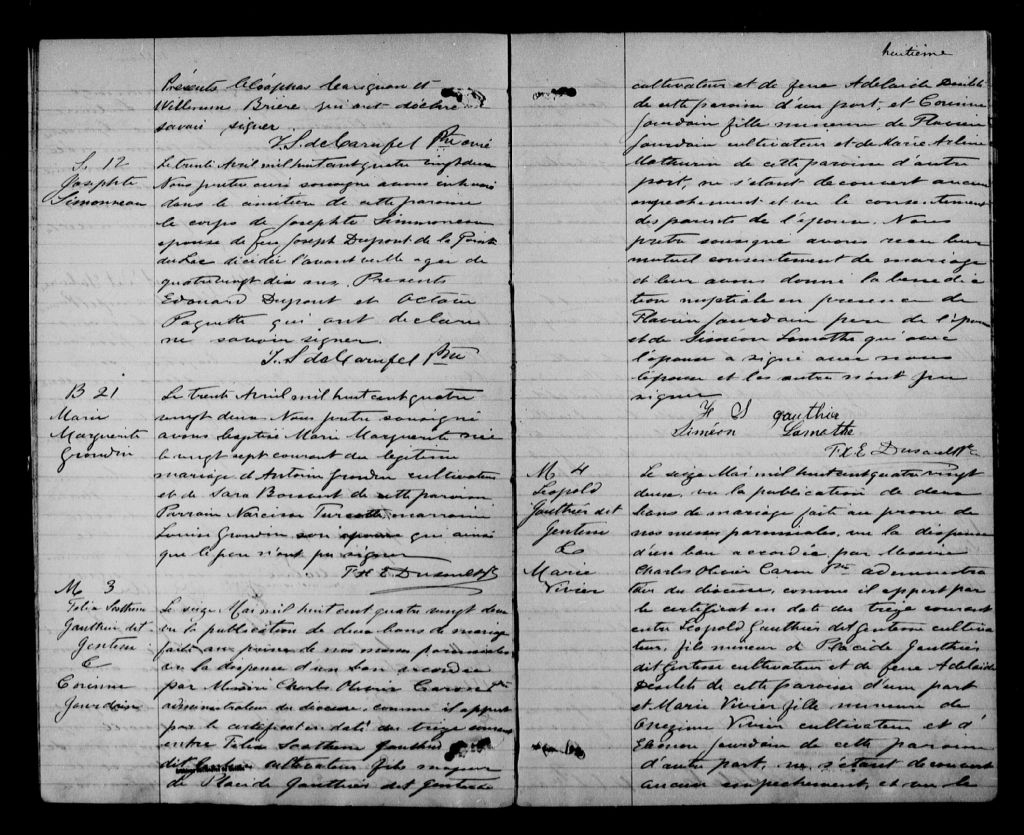 Présents Cléophas Marignan et
William Brière qui ont déclaré
savoir signer
T. S. de Carufel Ptre curé
S. 12
Josephte
Simonneau
Le trente Avril mil huit cent quatre vingt deux
Nous pretre curé sousigne avons inhumé
dans le cimitière de cette paroisse
le corps de Josephte Simmoneau
epouse de feu Joseph Dupont de la Pointe
du Lac décédée l'avant veille agee de
quatre vingt dix ans. Presents
Edouard Dupont et Octave
Paquette qui ont declare
ne savoir signer.
T. S de Carufel Ptre
B 21
Marie
Marguerite
Grondin
Le trente Avril mil huit cent quatre
vingt deux. Nous pretre sousigné
avons baptisé Marie Marguerite née
le vingt sept courant du legitime
mariage d'Antoine Grondin cultivateur
et de Sara Boisvert de cette paroisse
Parrain Narcisse Turcotte marraine
Louise Grondin son epouse qui ainsi
que le pere n'ont pu signer
F X E Dusault Ptre
M 3
Felix
Gauthier dit
Gentesse
&
Corinne
Jourdain
Le seize Mai mil huit cent quatre vingt deux
vu la publication de deux bans de mariage
faite au prône de nos messes paroissiales
vu la dispense d'un ban accordée
par Messire Charles Olivier Caron Ptre
administrateur du diocese, comme il appert
par le certificat en daté du treize courant
entre Felix Gauthier
dit cultivateur fils mineur
de Placide Gauthier dit Gentesse
huitième
cultivateur et de feue Adelaide
de cette paroisse d'un part, et Corinne
Jourdain fille mineure de Flavien
Jourdain cultivateur et de Marie Arline
Mathurin de cette paroisse d'autre
part, ne s'étant decouvert aucun
empechement et vu le consentement
des parents de l'épouse. Nous
pretre sousigné avons recu leur
mutuel consentement de mariage
et leur avons donné la bénédic
tion nuptiale en presence de
Flavien Jourdain pere de l'épouse
et de Siméon Lamothe qui avec
l'epoux a signé avec nous
l'epouse et les autres n'ont pu
signer
F S gauthier
Siméon Lamothe
F X. E Dusault Ptre
M 4
Léopold
Gauthier dit
Gentesse
&
Marie
Vivier
Le seize Mai mil huit cent quatre vingt
deux, vu la publication de deux
bans de mariage fait au prone de
nos messes paroissiales, vu la dispense
d'un ban accordée par Messire
Charles Olivier Caron Ptre administra
teur du diocèse, comme il appert par
le certificat en date du treize courant
entre Léopold Gauthier dit Gentesse cultiva
teur, fils mineur de Placide Gauthier
dit Gentesse cultivateur et de feue Adelaide
de cette paroisse d'un part
et Marie Vivier fille mineure de
Onezime Vivier cultivateur et d'
Jourdain de cette paroisse
d'autre part, ne s'étant decouvert
aucun empechement, et vu le